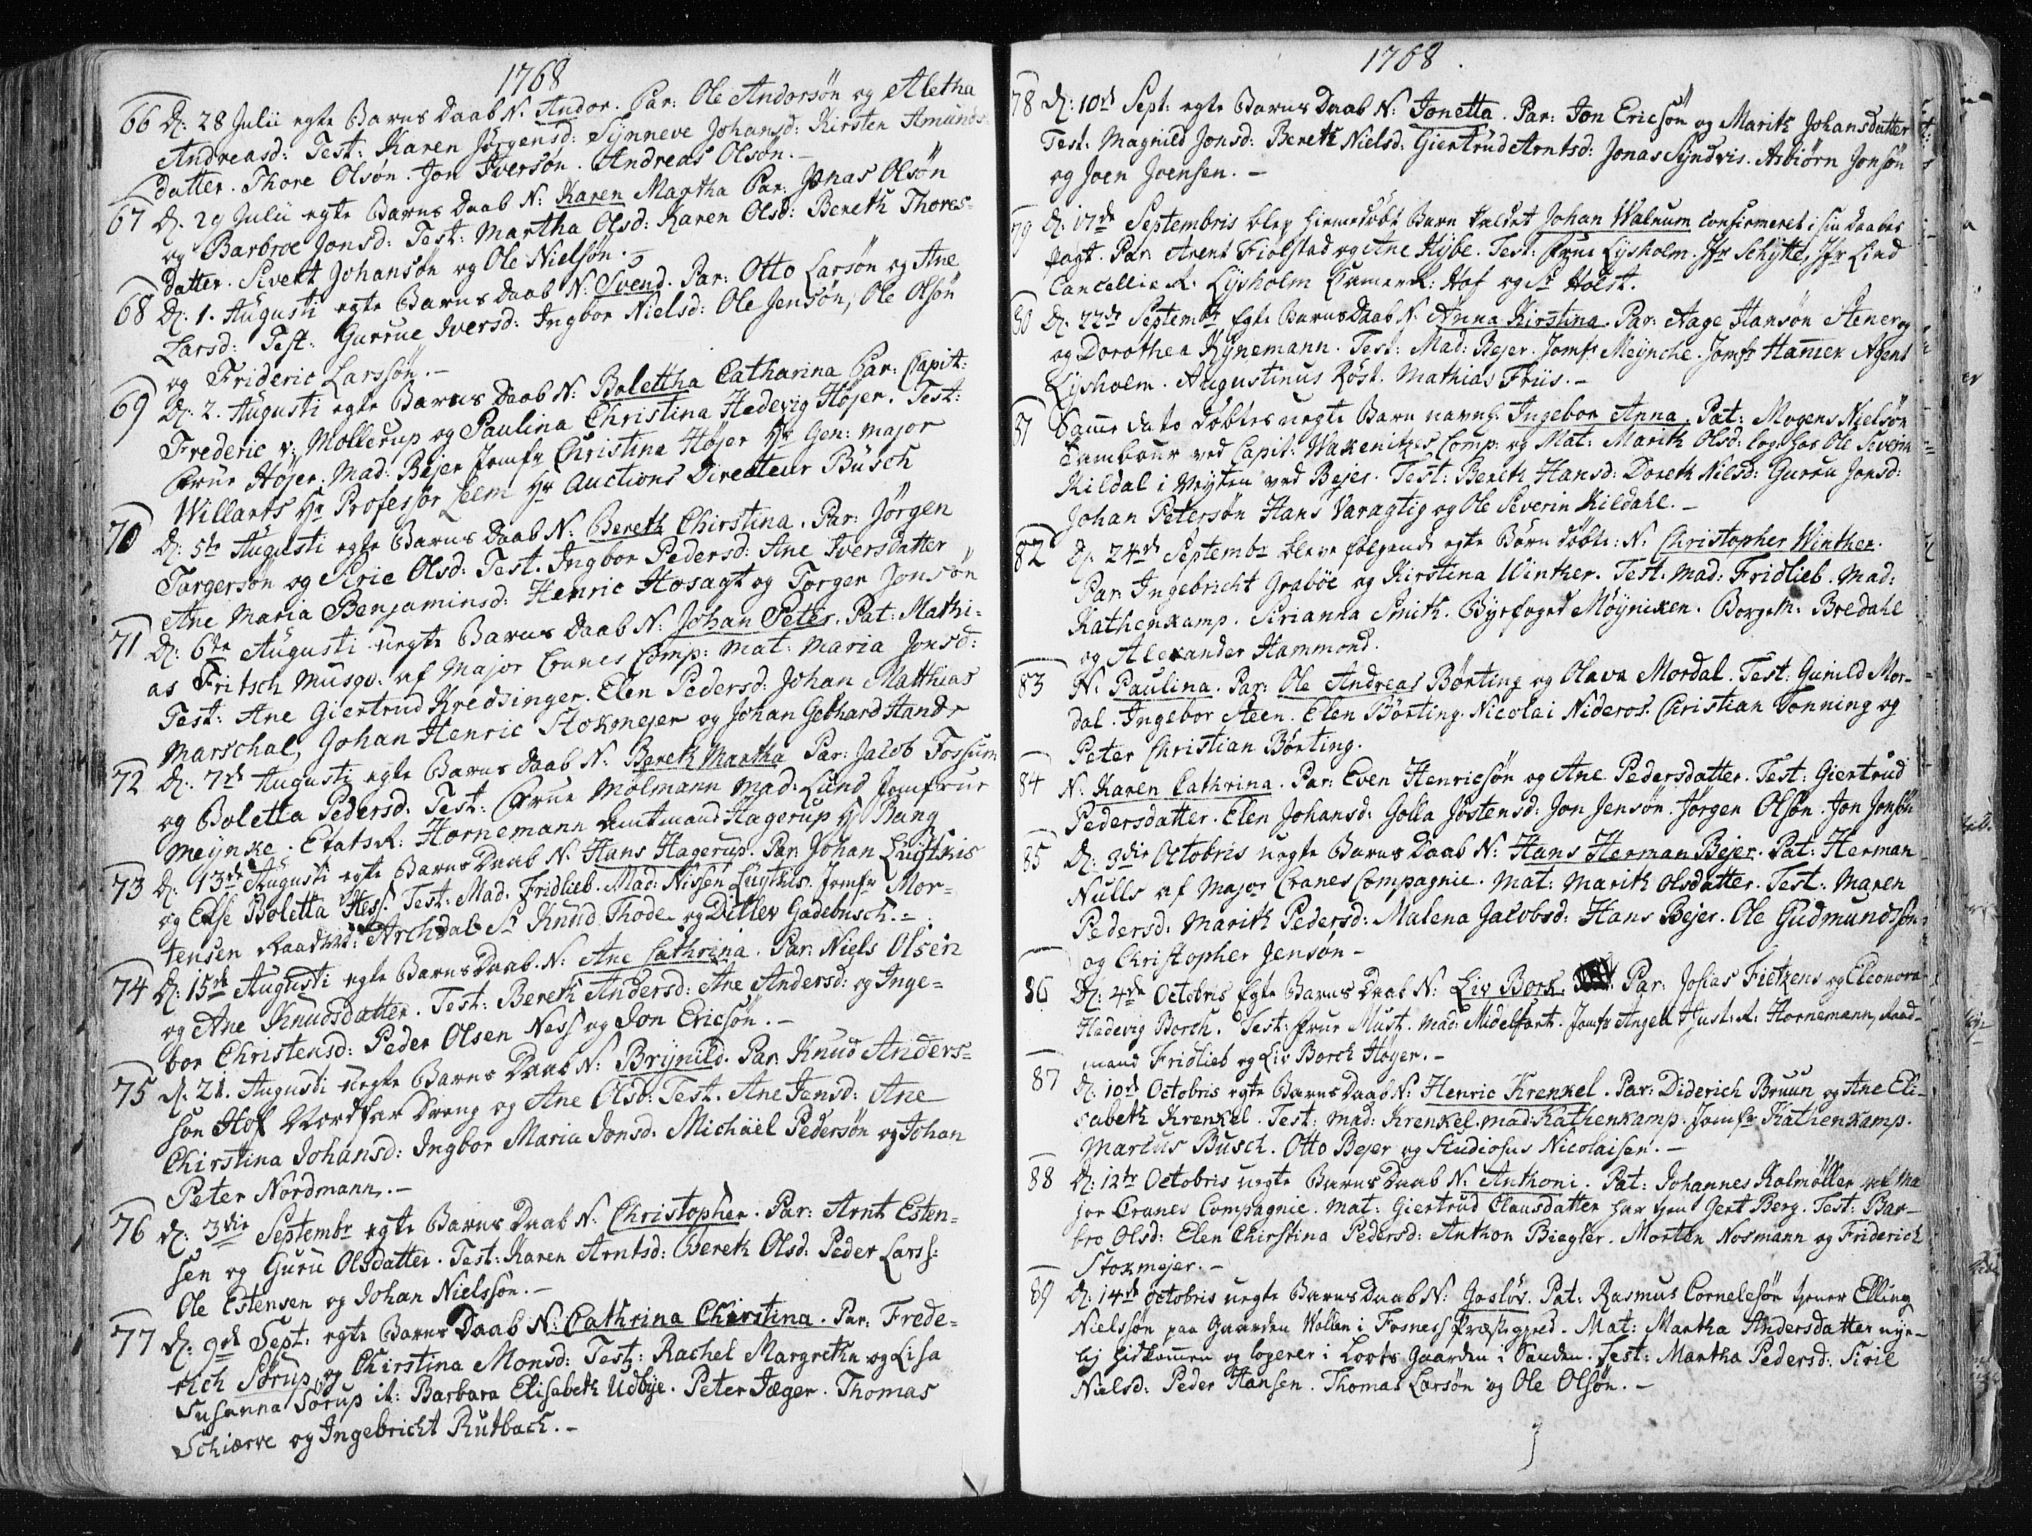 1768
66 D: 28 Julii egte Barns Daab N. Andor. Par: Ole Andorsøn og Aletha
Andreasd: Test: Karen Jörgensd: Synneve Johansd: Kirsten Amunds-
datter. Thore Olsøn. Jon Iversøn. Andreas Olsøn.-
67 D. 29 Julii egte Barns Daab N: Karen Martha Par. Jonas Olsøn
og Barbroe Jonsd: Test: Martha Olsd: Karen Olsd: Bereth Thores-
datter. Sivert Johansøn og Ole Nielsøn.
68 D: 1. Augusti egte Barns Daab N: Svend. Par: Otto Larsøn og Ane
Larsd: Test: Gurrue Iversd: Ingbor Nielsd: Ole Jensøn, Ole Olsøn
og Frideric Larssøn.-
69 D: 2. Augusti egte Barns Daab N: Bolettha Catharina Par: Capit:
Frederic v. Mollerup og Paulina Christina Hedevig Höjer. Test:
Frue Höjer. Mad: Bejer Jomfr Christina Höjer Hr Gen: major
Willarts Hr Professor Leem Hr Auctions Directeur Büsch
70 D: 5te Augusti egte Barns Daab N: Bereth Chirstina. Par: Jørgen
Torgersøn og Sirie Olsd: Test. Ingbor Pedersd: Ane Iversdatter
Ane Maria Benjaminsd: Henric Hosagt og Torger Jonsøn
71 D: 6te Augusti uegte Barns Daab N: Johan Peter. Pat: Mathi-
as Fritsch Musqv. af Major Cranes Comp: Mat: Maria Jonsd:
Test: Ane Giertrud Kredsinger. Elen Pedersd: Johan Matthias
Marschal, Johan Henric Stokmejer og Johan Gebhard Stander
72 D: 7de Augusti egte Barns Daab N: Bereth Martha Par: Jacob Fossum
og Boletta Pedersd: Test: Frue Molmann Mad: Lund Jomfrue
Meynke. Etats R: Hornemann Amtmand Hagerup Hr Bang
73 D: 13de Augusti egte Barns Daab N. Hans Hagerup. Par: Johan Luytkis
og Else Boletta Hess. Test: Mad. Fridlieb. Mad: Nissen Luytkis. Jomfr Mor-
tensen Raadmd: Archdal Sr Knud Thode og Ditlev Gadebusch.-
74 D: 15de Augusti egte Barns Daab. N: Ane Cathrina. Par: Niels Olsen
og Ane Knudsdatter. Test: Bereth Andersd: Ane Andersd: og Inge-
bor Christensd: Peder Olsen Ness og Jon Ericsøn.-
75 D. 21. Augusti uegte Barns Daab N: Brynild. Par: Knud Anders-
søn Hof Nordfar Dreng og Ane Olsd: Test. Ane Jensd: Ane
Chirstina Johansd: Ingbor Maria Jonsd: Michael Pedersøn og Johan
Peter Nordmann.-
76 D: 3die Septembr egte Barns Daab N: Christopher. Par: Arnt Esten-
sen og Guru Olsdatter. Test: Karen Arntsd: Bereth Olsd: Peder Larss:
Ole Estensen og Johan Nielssøn.-
77 D: 9de Sept: egte Barns Daab N: Cathrina Chirstina. Par: Frede-
rich Sørup og Chirstina Monsd: Test: Rachel Margretha og Lisa
Susanna Sørup it: Barbara Elisabeth Udbye. Peter Jæger. Thomas
Schiærve og Ingebricht Rutbach.-
1768.
78 D: 10de Sept: egte Barns Daab N: Jonetta. Par: Jon Ericsøn og Marith Johansdatter
Test: Magnild Jonsd: Bereth Nielsd: Giertrud Arntsd: Jonas Syndvis. Asbiørn Jonsøn
og Joen Joensen.-
79 D: 17de Septembris blev hiemedøbt Barn kaldet Johan Walnum confirmeret i sin Daabes
Pagt. Par: Arent Fiolstad og Ane Hybe. Test: Frue Lysholm. Jfr Schytte, Jfr Lind
Cancellie R. Lysholm Cammer R: Hof og Sr Holst.
80 D: 22de Septembr Egte Barns Daab N. Anna Kirstina. Par: Aage Hansøn Stener og
og Dorothea Rynemann. Test: Mad: Bejer. Jomfr Meynche. Jomfr Hamer Agent
Lysholm. Augustinus Röst. Mathias Friis.-
81 Samme dato døbtes uegte Barn navnl: Ingebor Anna. Pat: Mogens Nielsøn
Tambour ved Capit: Wakenitzes Comp: og Mat: Marith Olsd: log: hos Ole Severin
Kildal i Myten ved Bejer. Test: Berith Hansd: Doreth Nilsd: Guruu Jonsd:
Johan Petersøn Hans Varagtig og Ole Severin Kildahl.-
82 D: 24de Septembr bleve følgende egte Børn døbte: N. Christopher Winther.
Par: Ingebricht Grabøe og Kirstina Winther. Test: Mad: Fridlieb. Mad:
Kathenkamp. Sirianna Smith. Byefoged Møynicken. Borgem. Bredahl
og Alexander Hammond.
83 N. Paulina. Par: Ole Andreas Børting og Olava Mordal. Test: Gunild Mor-
dal. Ingebor Steen. Elen Børting. Nicolai Nideros. Christian Tønning og
Peter Christian Børting.
84 N. Karen Cathrina. Par: Even Henricsøn og Ane Pedersdatter. Test: Giertrud
Pedersdatter. Elen Johansd: Golla Jöstensd: Jon Jensøn. Jörgen Olsøn. Jon Jonsøn
85 D: 3die Octobris uegte Barns Daab N: Hans Herman Bejer. Pat: Herman
Nulls af Major Cranes Compagnie. Mat: Marith Olsdatter. Test: Maren
Pedersd: Marith Pedersd: Malena Jacobsd: Hans Bejer. Ole Gudmundsøn
og Christopher Jensøn-
86 D: 4de Octobris Egte Barns Daab N: Liv Bork. Par: Josias Fietzens og Eleonora
Hedevig Borch. Test: Frue Must. Mad: Midelfart. Jomfr Angell Just: R: Hornemann, Raad-
mand Fridlieb og Liv Borch Höyer.-
87 D: 10de Octobris egte Barns Daab N: Henric Krenkel. Par: Diderich Bruun og Ane Eli-
sabeth Krenkel. Test: Mad: Krenkel. Mad: Kathenkamp. Jomfr Kathenkamp.
Marcus Busch. Otto Bejer og Studiosus Nicolaisen.-
88 D: 12te Octobris uegte Barns Daab N. Anthoni. Pat: Johannes Kolmöller af Ma
jor Cranes Compagnie. Mat: Giertrud Clausdatter har tient Gert Berg. Test: Bar-
bro Olsd: Elen Chirstina Pedersd: Anthon Biegler. Morten Nosmann og Friderich
Stokmejer.-
89 D: 14de Octobris uegte Barns Daab N: Gosløv. Pat: Rasmus Cornelesøn tiener Elling
Nielssøn paa Gaarden Wollen i Fosness Præstegield. Mat: Martha Andersdatter nye-
lig hidkommen og logerer i Loots Gaarden i Sanden. Test: Martha Pedersd: Sirie
Nielsd: Peder Hansen. Thomas Larsøn og Ole Olsøn.-